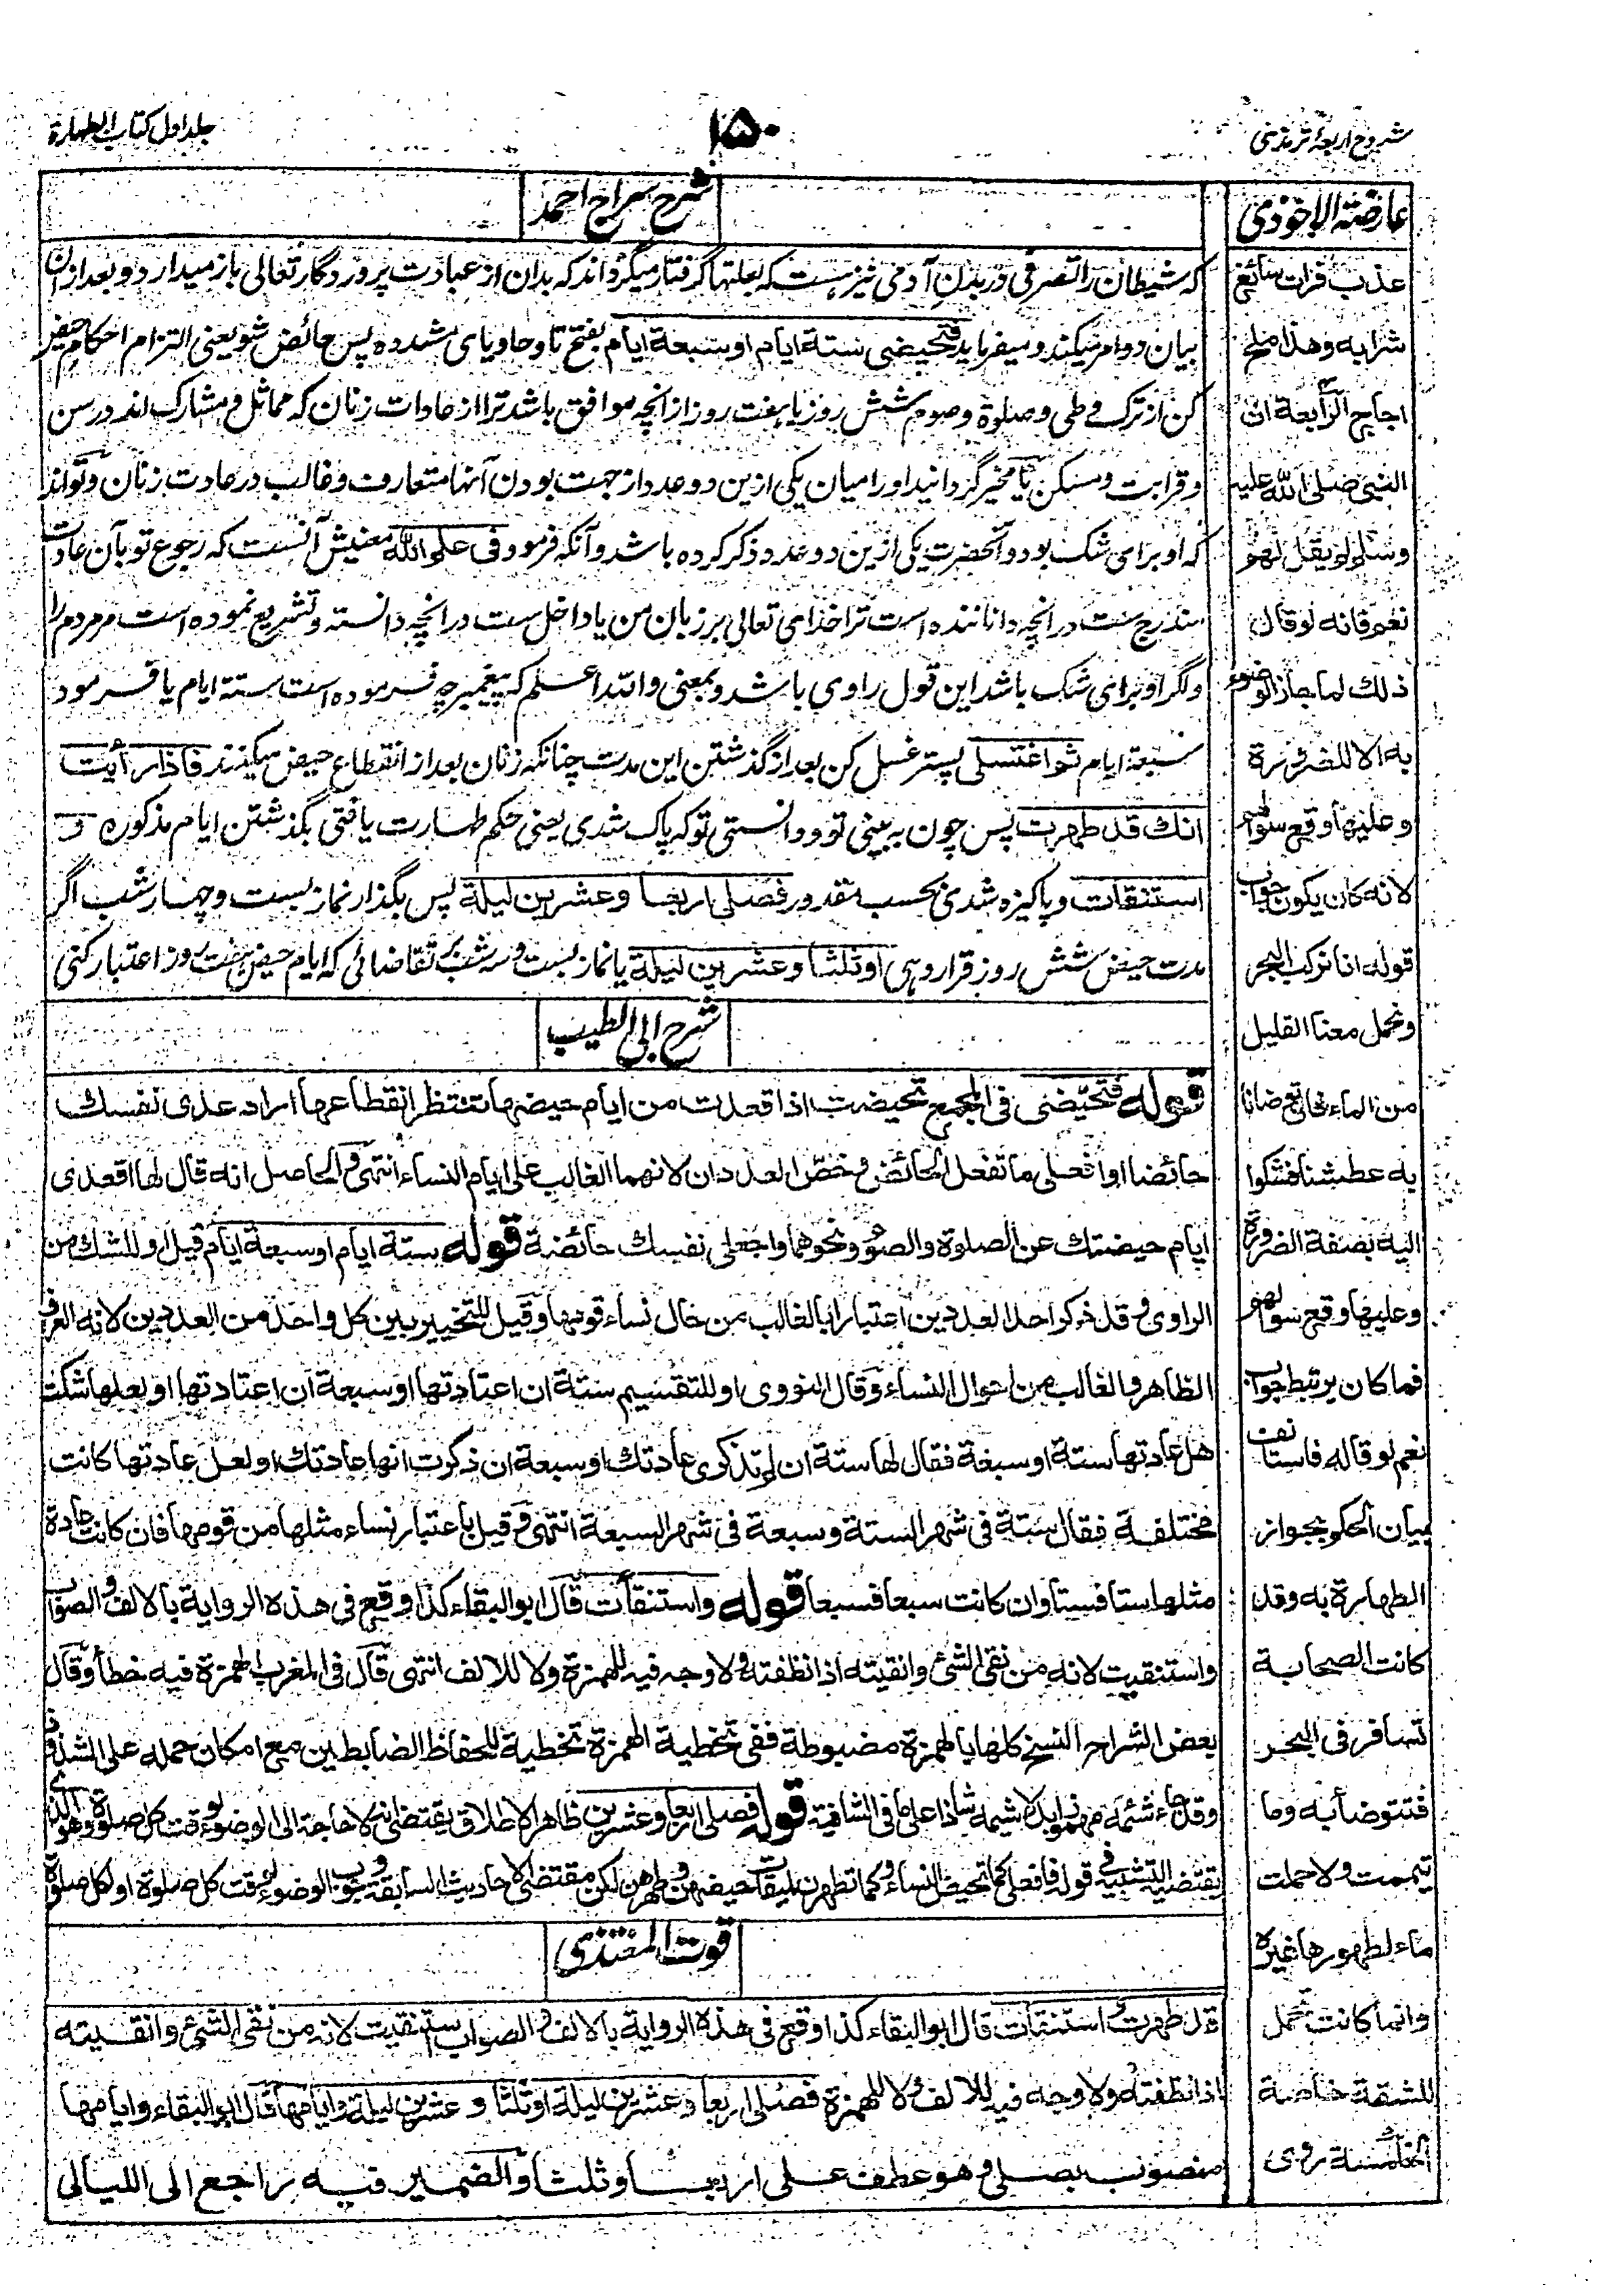 شروح اربعهٔ ترمذی
۱۵۰
جلد اول کتاب الطهارة
عارضة الاحوذی
عذب فرات سائغ
شرابه وهذا ملح
اجاج الرابعة ان
النبی صلی الله علیه
وسلم لم یقل لهم
نعم فانه لو قال
ذلك لما جاز الوضوء
به الا للضرورة
وعلیها وقع سوالهم
لانه کان یکون جواب
قوله انا نرکب البحر
ونحمل معنا القلیل
من الماء فان توضانا
به عطشنا فشکوا
الیه بصفة الضرورة
وعلیها وقع سوالهم
فما کان یرتبط جواب
نعم لو قاله فاستانف
بیان الحکم بجواز
الطهارة به وقد
کانت الصحابة
تسافر فی البحر
فتتوضأ به وما
تیممت ولا حملت
ماء لطهورها غیره
وانما کانت تحمل
للشقة خاصة
الخامسة روی
شرح سراج احمد
که شیطان را تصرفی در بدن آدمی نیز هست که بعلتها گرفتار میگرداند که بدان از عبادت پروردگار تعالی باز میدارد و بعد از ان
بیان دو امر میکند و میفرماید فتحیضی ستة ایام او سبعة ایام بفتح تا و حا و یای مشدده پس حائض شو یعنی التزام احکام حیض
کن از ترک وطی و صلوة و صوم شش روز یا هفت روز از انچه موافق باشد ترا از عادات زنان که مماثل و مشارک اند در سن
و قرابت و مسکن یا مخیر گردانید او را میان یکی ازین دو عدد از جهت بودن آنها متعارف و غالب در عادت زنان و تواند
که او برای شک بود و آنحضرت یکی ازین دو عدد ذکر کرده باشد و آنکه فرمود فی علم الله معنیش آنست که رجوع تو بآن عادت
مندرج ست در انچه دانانده است ترا خدای تعالی بر زبان من یا داخل ست در انچه دانسته و تشریع نموده است مر مردم را
و اگر او برای شک باشد این قول راوی باشد و بمعنی والله اعلم که پیغمبر چه فرموده است ستة ایام یا فرمود
سبعة ایام ثم اغتسلی پستر غسل کن بعد از گذشتن این مدت چنانکه زنان بعد از انقطاع حیض میکنند فاذا رأیت
انك قد طهرت پس چون به بینی تو و دانستی تو که پاک شدی یعنی حکم طهارت یافتی بگذشتن ایام مذکوره و
استنقات و پاکیزه شدی بحسب مقدور فصلی اربعا وعشرین لیلة پس بگذار نماز بست و چهار شب اگر
مدت حیض شش روز قرار دهی او ثلثا وعشرین لیلة یا نماز بست و سه شب بر تقاضائی که ایام حیض هفت روز اعتبار کنی
شرح ابی الطیب
قوله فتحیضی فی المجمع تحیضت اذا قعدت من ایام حیضها تنتظر انقطاعها اراد عدی نفسك
حائضا او افعلی ما تفعل الحائض وخص العددان لانهما الغالب علی ایام النساء انتهی والحاصل انه قال لها اقعدی
ایام حیضتك عن الصلوة والصوم ونحوهما واجعلی نفسك حائضة قوله ستة ایام او سبعة ایام قیل او للشك من
الراوی وقد ذکر احد العددین اعتبارا بالغالب من حال نساء قومها وقیل للتخییر بین کل واحد من العددین لانه العرف
الظاهر والغالب من احوال النساء وقال النووی او للتقسیم ستة ان اعتادتها او سبعة ان اعتادتها او لعلها شکت
هل عادتها ستة او سبعة فقال لها ستة ان لم تذکری عادتك او سبعة ان ذکرت انها عادتك او لعل عادتها کانت
مختلفة فقال ستة فی شهر الستة وسبعة فی شهر السبعة انتهی وقیل باعتبار نساء مثلها من قومها فان کانت عادة
مثلها ستا فستا وان کانت سبعا فسبعا قوله واستنقأت قال ابو البقاء کذا وقع فی هذه الروایة بالالف والصواب
واستنقیت لانه من نقی الشئ وانقیته اذا نظفته ولا وجه فیه للهمزة ولا للالف انتهی قال فی المغرب الهمزة فیه خطأ وقال
بعض الشراح النسخ کلها بالهمزة مضبوطة ففی تخطیة الهمزة تخطیة للحفاظ الضابطین مع امکان حمله علی الشذوذ
وقد جاء شئمة مهموز بدل شیمة شاذا علی ما فی الشافیة قوله فصلی اربعا وعشرین ظاهر الاطلاق یقتضی انه لا حاجة الی الوضوء لوقت کل صلوة وهو الذی
یقتضیه التشبیه فی قوله فافعلی کما تحیض النساء وکما تطهرن لمیقات حیضهن وطهرهن لکن مقتضی الاحادیث السابقة وجوب الوضوء لوقت کل صلوة او لکل صلوة
قوت المغتذی
قد طهرت واستنقأت قال ابو البقاء کذا وقع فی هذه الروایة بالالف والصواب استنقیت لانه من نقی الشئ وانقیته
اذا نظفته ولا وجه فیه للالف ولا للهمزة فصلی اربعا وعشرین لیلة او ثلثا وعشرین لیلة وایامها قال ابو البقاء وایامها
منصوب بصلی وهو عطف علی اربعا وثلثا والضمیر فیه راجع الی اللیالی